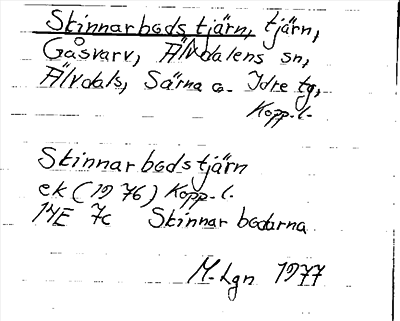 Skinnarbodstjärn, tjärn,
Gåsvarv, Älvdalens sn,
Älvdals, Särna o. Idre tg,
Kopp. l.
Skinnarbodstjärn
ek (1976) Kopp. l.
14E 7c Skinnarbodarna
M. Lgn 1977